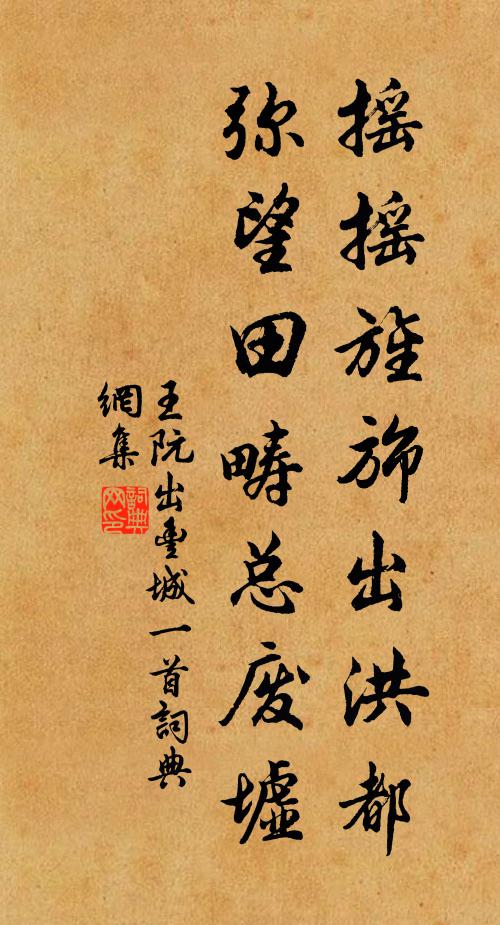 摇摇旌斾出洪都
弥望田畴总废墟
王阮出豊城一首詞典
網集
詞典网印